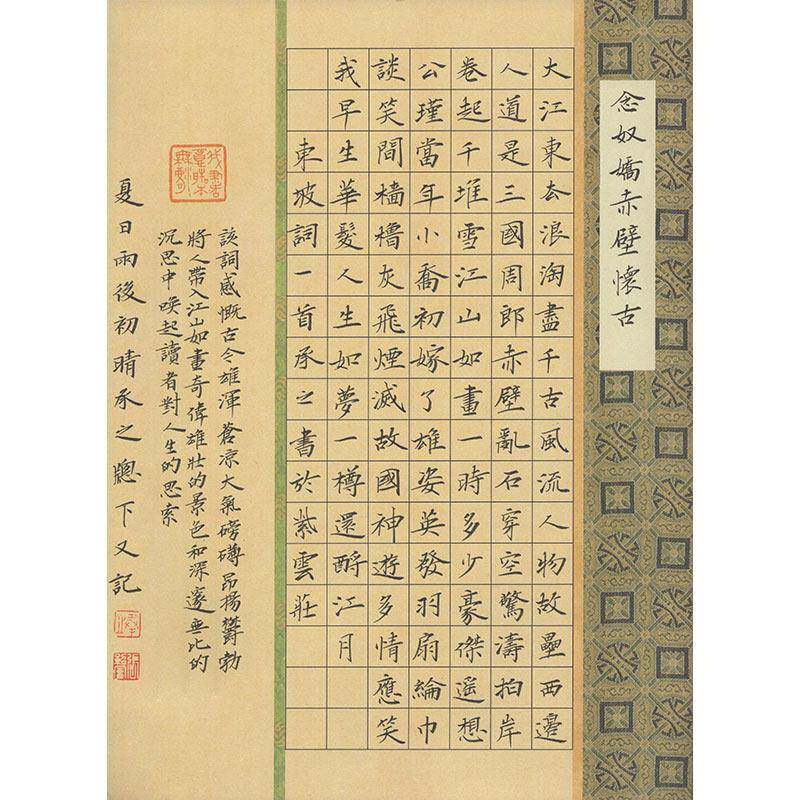 念奴嬌赤壁懷古
大江東去浪淘盡千古風流人物故壘西邊
人道是三國周郎赤壁亂石穿空驚濤拍岸
卷起千堆雪江山如畫一時多少豪傑遙想
公瑾當年小喬初嫁了雄姿英發羽扇綸巾
談笑間檣櫓灰飛煙滅故國神遊多情應笑
我早生華髮人生如夢一樽還酹江月
東坡詞一首承之書於紫雲莊
該詞感慨古今雄渾蒼涼大氣磅礴昂揚鬱勃
將人帶入江山如畫奇偉雄壯的景色和深邃無比的
沉思中喚起讀者對人生的思索
夏日雨後初晴承之牕下又記